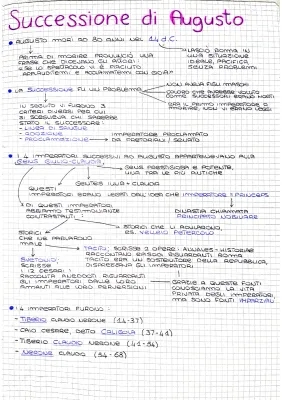 Successione di Augusto
• AUGUSTO MORÌ AD 80 ANNI NEL 14 d.C.
PRIMA DI MORIRE PRONUNCIÒ UNA
FRASE CHE DICEVANO GLI ATTORI
"SE LO SPETTACOLO VI È PIACIUTO
APPLAUDITEMI E
LASCIÒ ROMA IN
UNA SITUAZIONE
IDEALE, PACIFICA
SENZA PROBLEMI
• LA SUCCESSIONE FU UN PROBLEMA
NON AVEVA FIGLI MASCHI
COLORO CHE AVREBBE VOLUTO
COME SUCCESSORI ERANO MORTI
ERA IL PRIMO IMPERATORE A
MORIRE, NON VI ERANO LEGGI
IN SEGUITO VI FURONO 3
CRITERI DIVERSI PER CUI
SI SCEGLIEVA CHI SAREBBE
STATO IL SUCCESSORE:
- LINEA DI SANGUE
- ADOZIONE
- PROCLAMAZIONE
IMPERATORE PROCLAMATO
DA PRETORIANI / SENATO
• I 4 IMPERATORI SUCCESSIVI AD AUGUSTO APPARTENEVANO ALLA
GENS GIULIO-CLAUDIA
GENS PRESTIGIOSA E POTENTE,
UNA TRA LE PIÙ ANTICHE
GENTES IULIA - CLAUDIA
QUESTI
IMPERATORI ERANO LEGATI DALL'IDEA CHE IMPERATORE = PRINCEPS
DI QUESTI IMPERATORI,
ABBIAMO TESTIMONIANZE
CONTRASTANTI
DINASTIA CHIAMATA
PRINCIPATO
STORICI
CHE NE PARLAVANO
MALE
STORICI CHE LI ADULAVANO,
ES. VELLEIO PATERCOLO
TACITO: SCRISSE 2 OPERE: ANNALES - HISTORIAE
RACCONTANO EPISODI RIGUARDANTI ROMA
TACITO ERA UN SOSTENITORE DELLA REPUBBLICA,
DISPREZZAVA GLI IMPERATORI
SVETONIO:
SCRISSE
I 12 CESARI
RACCONTA ANEDDOTI RIGUARDANTI
GLI IMPERATORI DALLE LORO
AMANTI ALLE LORO PERVERSIONI
GRAZIE A QUESTE FONTI
CONOSCIAMO LA VITA
PRIVATA DEGLI IMPERATORI,
MA SONO FONTI IMPARZIALI
• I 4 IMPERATORI FURONO:
- TIBERIO CLAUDIO NERONE (14-37)
- CAIO CESARE, DETTO CALIGOLA (37-41)
- TIBERIO CLAUDIO NERONE (41-54)
- NERONE CLAUDIO (54-68)